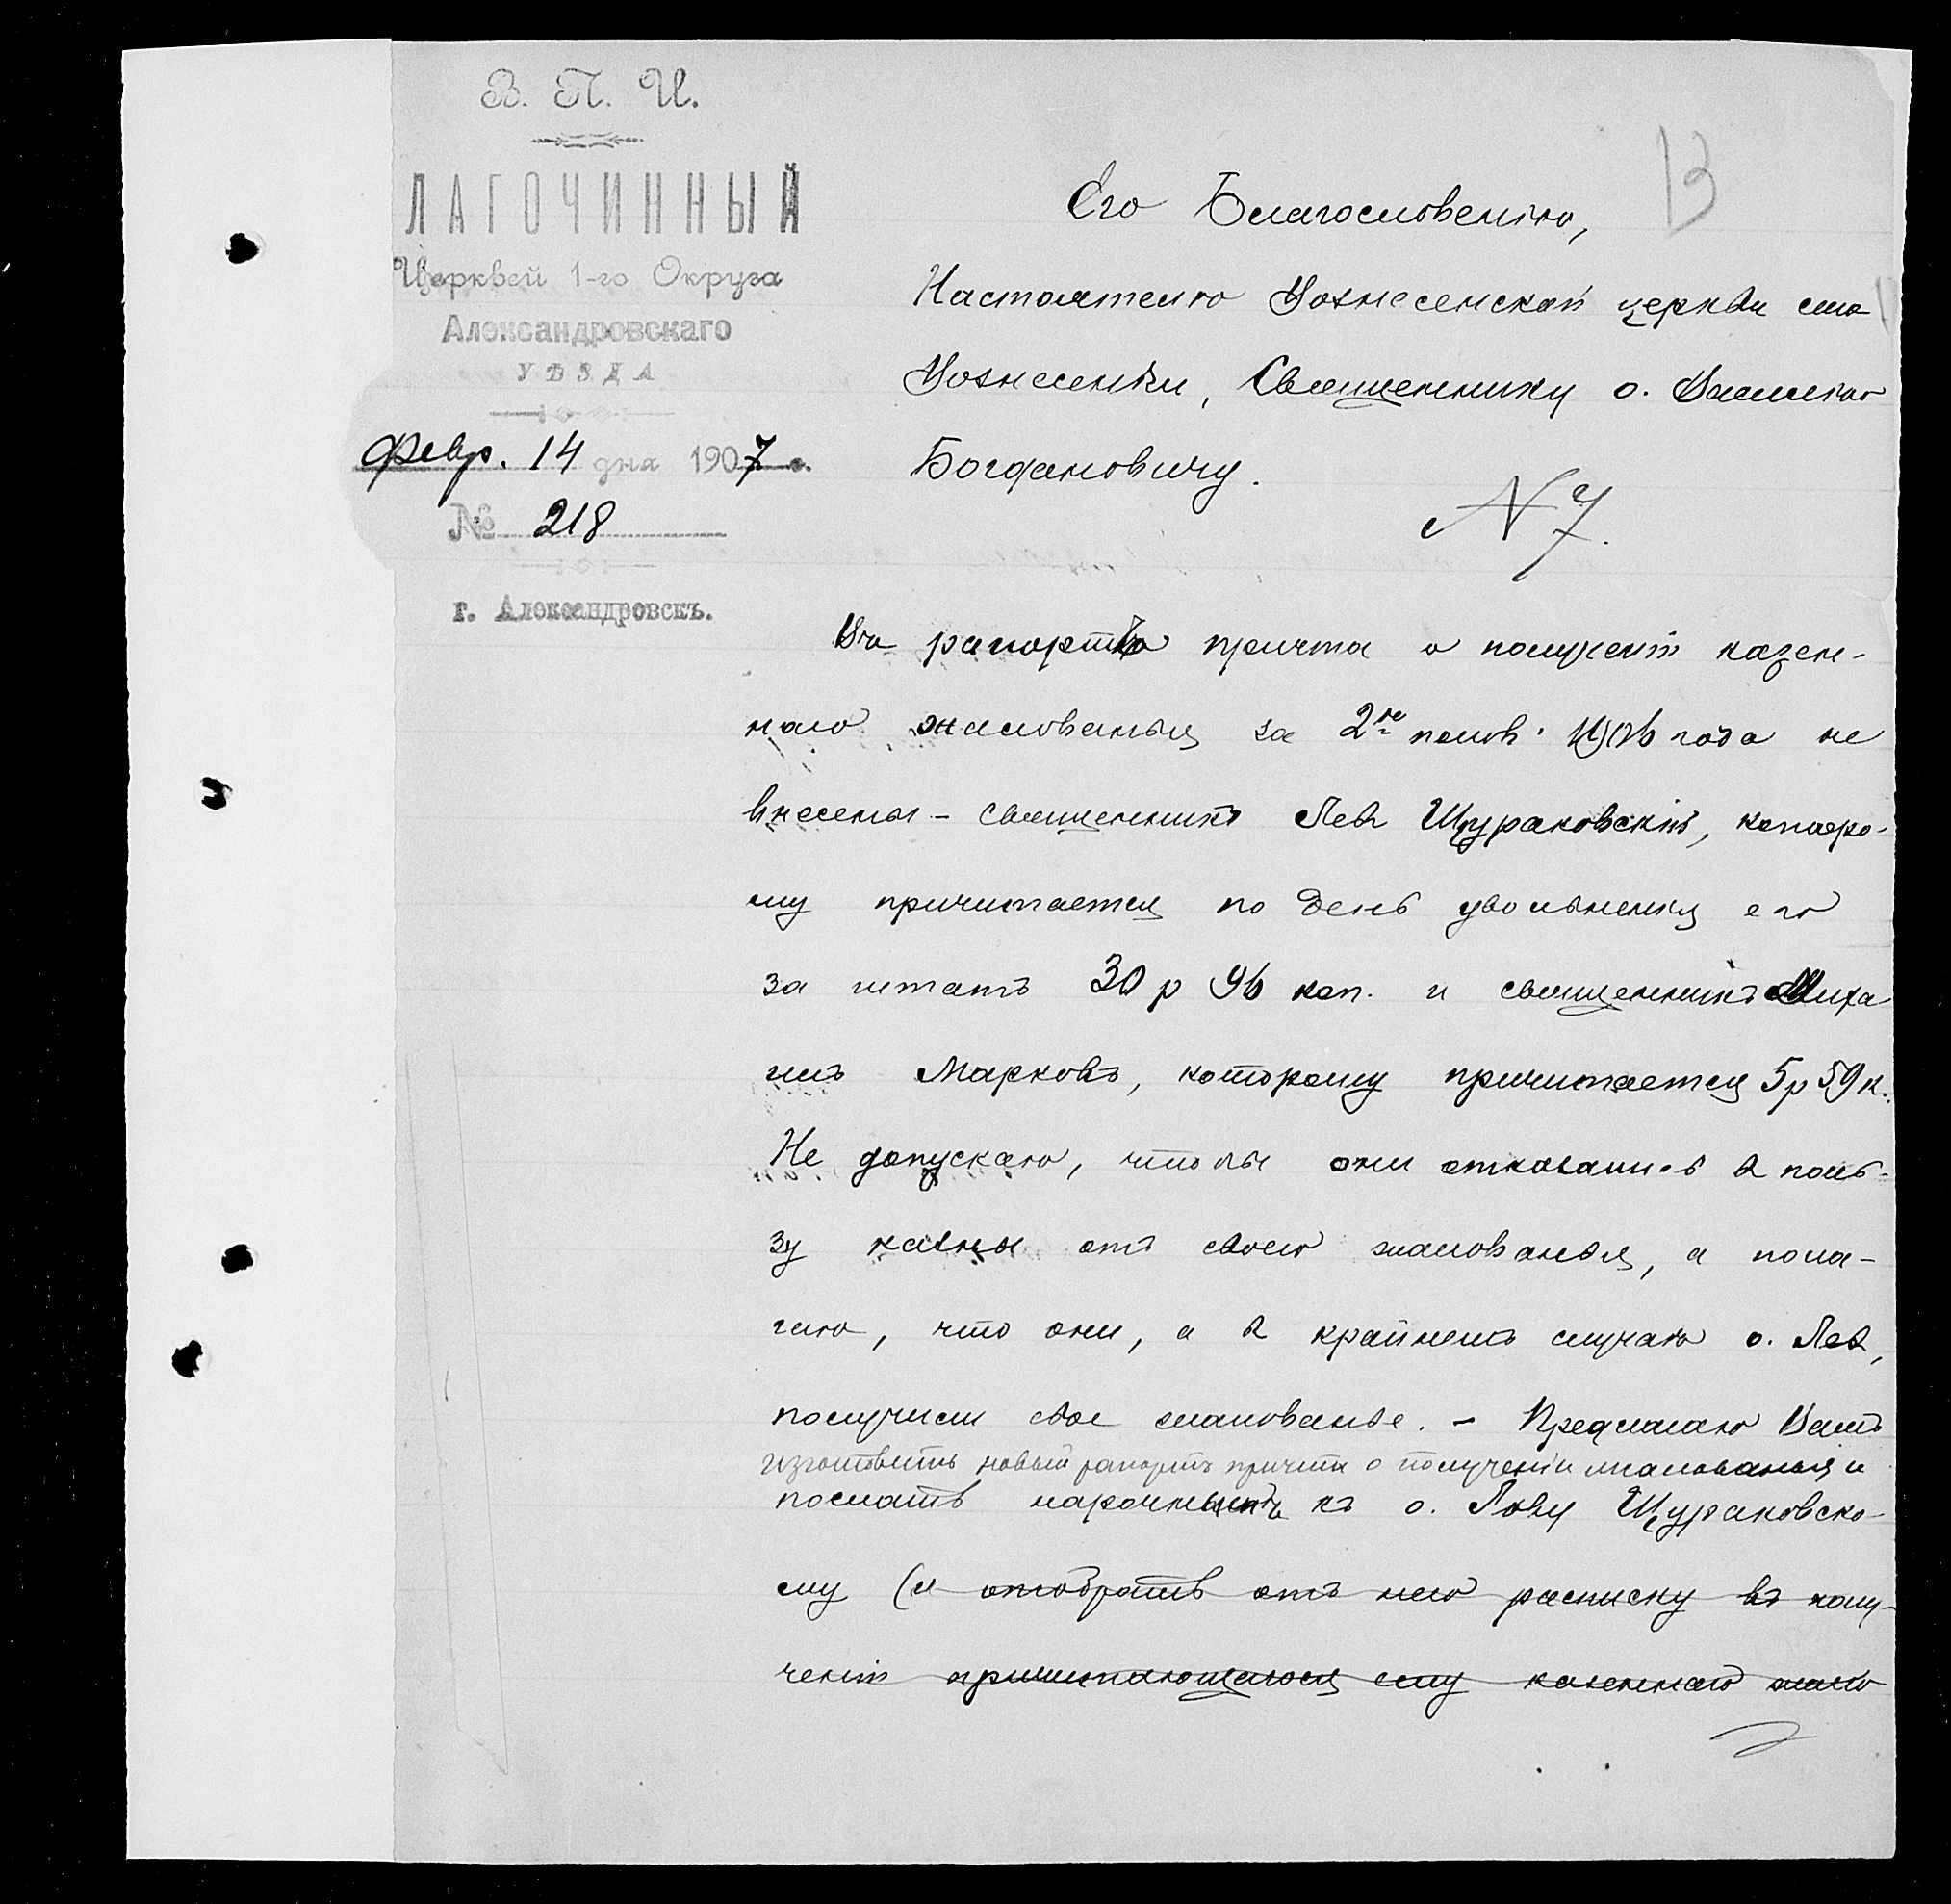 В. П. И.
ЛАГОЧИННЫЙ
Церквей 1-го Округа
Александровскаго
УѢЗДА
Февр. 14 дня 1907 г.
№ 218
г. Александровскъ.
13
Его Благословенію,
Настоятелю Вознесенской церкви села
Вознесенки, Священнику о. Василію
Богдановичу.
N 7.
Въ рапортъ причта о полученіи казен-
наго жалованья за 2ю полов. 1906 года не
внесены - священникъ Левъ Щураковскій, которо-
му причитается по день увольненія его
за штатъ 30 р 96 коп. и священникъ Миха
илъ Марковъ, которому причитается 5 р 59 к.
Не допускаю, чтобы они отказались въ поль-
зу казны отъ своего жалованья, а пола-
гаю, что они, а въ крайнемъ случаѣ о. Левъ,
получили свое жалованье. - Предлагаю Вамъ
изготовить новый рапортъ причта о полученіи жалованья и
послать нарочнымъ къ о. Льву Щураковско-
му (и отобрать отъ него расписку въ полу-
ченіи причитающагося ему казеннаго жало